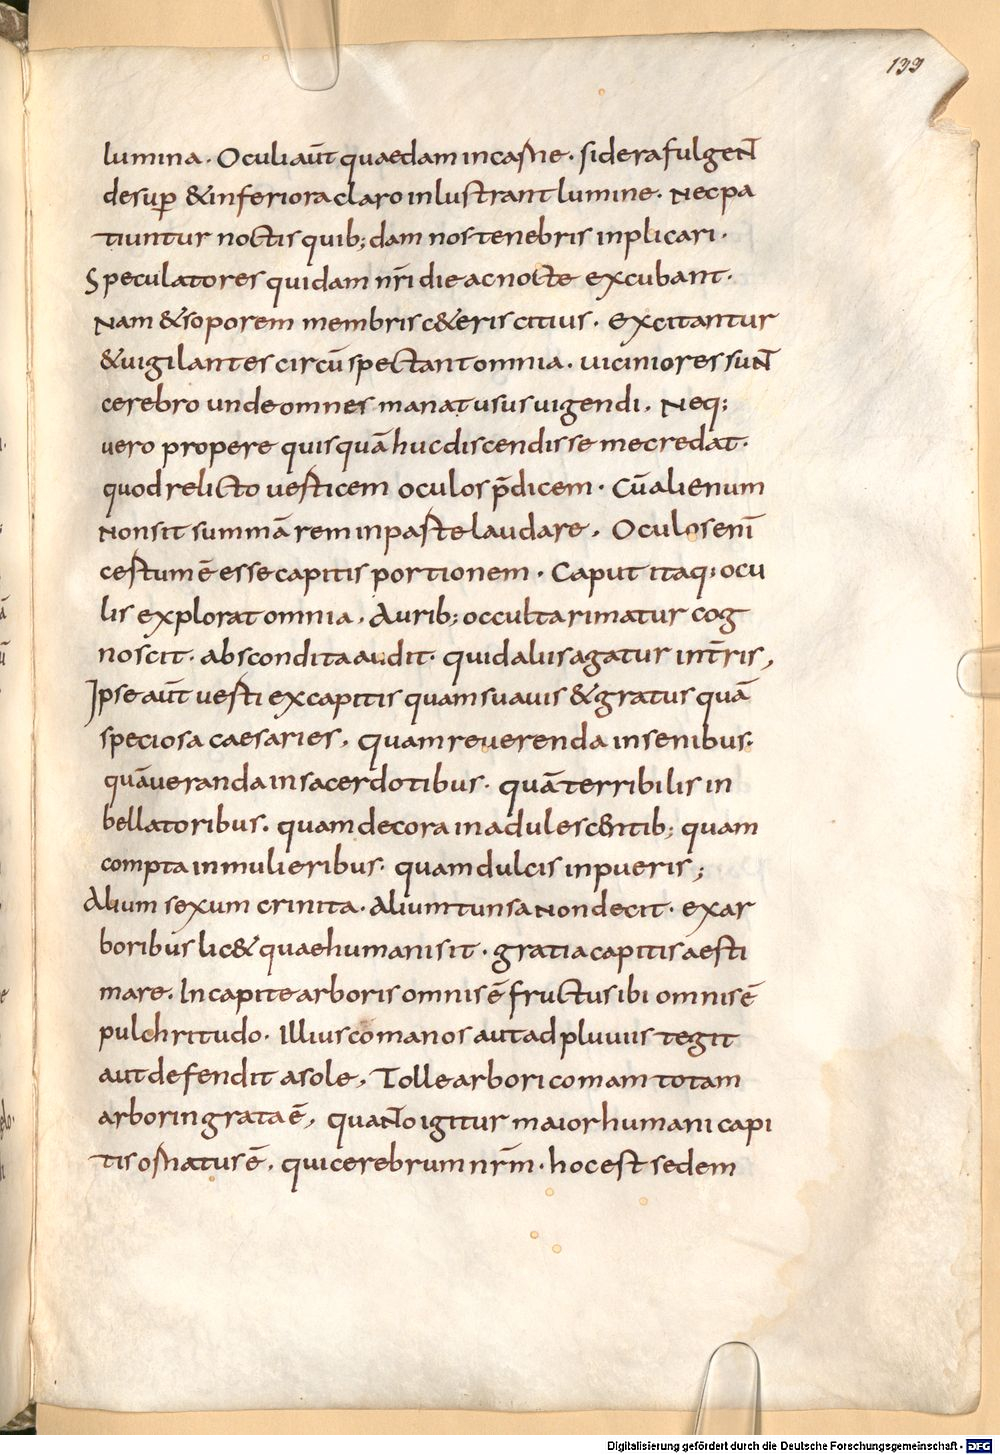 133
lumina. Oculi aut̄ quaedam in carne. sidera fulgen̄t
desup̱ & inferiora claro inlustrant lumine. Nec pa
tiuntur noctis quib; dam nos tenebris inplicari.
Speculatores quidam nr̄i die ac nocte excubant.
Nam & soporem membris c&eris citius. excitantur
& uigilantes circū spectant omnia. uiciniores sunt
cerebro unde omnes manat usus uigendi. Neq;
uero propere quisquā huc discendisse me credat.
quod relicto uerticem oculos p̄dicem. Cū alienum
non sit summā rem in parte laudare. Oculos enī
certum ē esse capitis portionem. Caput itaq; ocu
lis explorat omnia. Aurib; occulta rimatur cog
noscit. abscondita audit. quid aliis agatur in tr̄ris,
Ipse aut̄ uerti ex capitis quam suauis & gratus quā
speciosa caesaries. Quam reuerenda in senibus.
quā ueranda in sacerdotibus. quā terribilis in
bellatoribus. quam decora in adulescentib; quam
compta in mulieribus. quam dulcis in pueris;
Alium sexum crinita. Alium tunsa non decit. ex ar
boribus lic& quae humani sit. gratia capitis aesti
mare. In capite arboris omnis ē fructus ibi omnis ē
pulchritudo. Illius coma nos aut ad pluuiis tegit
aut defendit a sole. Tolle arbori comam totam
arbor ingrata ē. quanto igitur maior humani capi
tis ornatus ē. qui cerebrum nr̄m. hoc est sedem
Digitalisierung gefördert durch die Deutsche Forschungsgemeinschaft - DFG